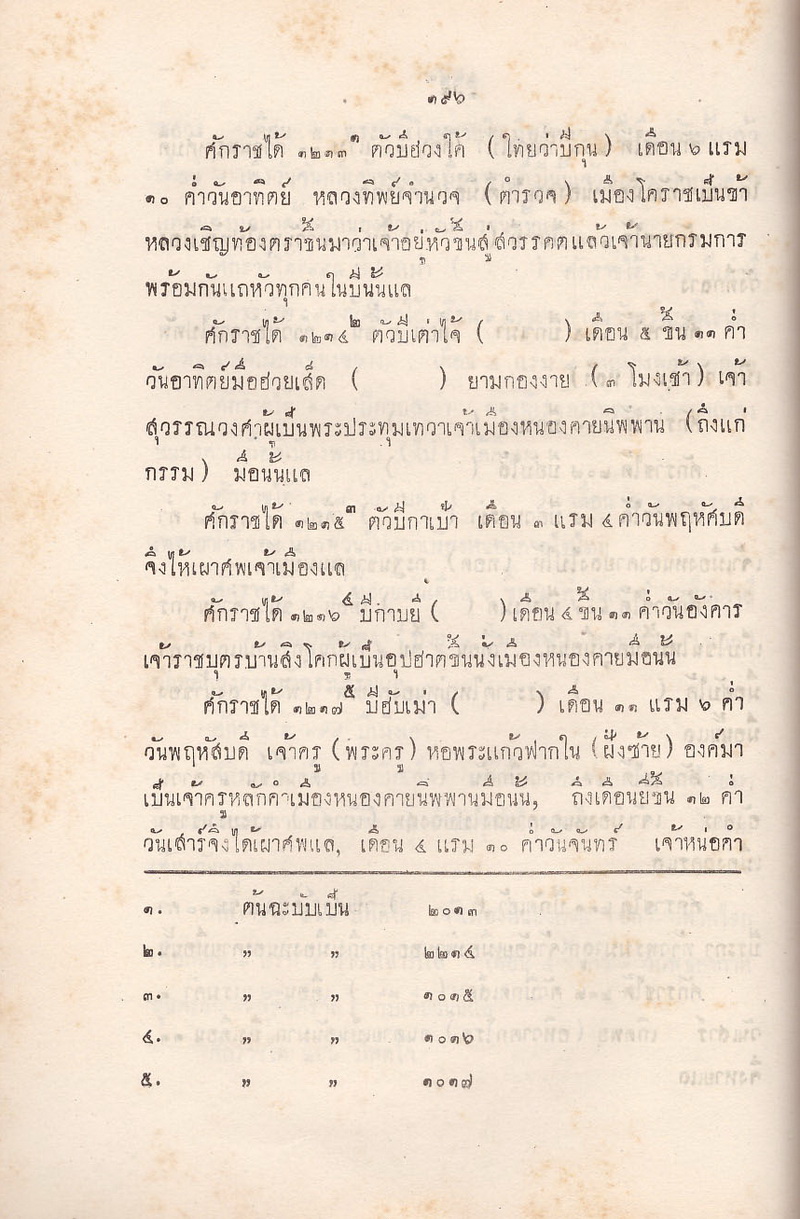 ๑๙๖
ศักราชได้ ๑๒๑๓๑ ตัวปีฮ่วงใค้ (ไทยว่าปีกุน) เดือน ๖ แรม
๑๐ ค่ำวันอาทิตย์ หลวงทิพย์จำนวจ (ตำรวจ) เมืองโคราชเป็นข้า
หลวงเชิญท้องตราขึ้นมาว่าเจ้าอยู่หัวขึ้นสู่สวรรคตแล้วเจ้านายกรมการ
พร้อมกันแถหัวทุกคนในปีนั้นแล
ศักราชได้ ๑๒๑๔๒ ตัวปีเต่าไจ้ ( ) เดือน ๕ ขึ้น ๑๑ ค่ำ
วันอาทิตย์มื้อฮ่วยเส็ด ( ) ยามกองงาย (๓ โมงเช้า) เจ้า
สุวรรณวงศาผู้เป็นพระประทุมเทวาเจ้าเมืองหนองคายนิพพาน (ถึงแก่
กรรม) มื้อนั้นแล
ศักราชได้ ๑๒๑๕๓ ตัวปีกาเป้า เดือน ๓ แรม ๔ ค่ำวันพฤหัสบดี
จึ่งให้เผาศพเจ้าเมืองแล
ศักราชได้ ๑๒๑๖๔ ปีกาบยี่ ( ) เดือน ๔ ขึ้น ๑๑ ค่ำวันอังคาร
เจ้าราชบุตรบ้านสิงโคกผู้เป็นอุปฮาดขึ้นนั่งเมืองหนองคายมื้อนั้น
ศักราชได้ ๑๒๑๗๕ ปีฮับเม่า ( ) เดือน ๑๑ แรม ๖ ค่ำ
วันพฤหัสบดี เจ้าครู (พระครู) หอพระแก้วฟากใน (ฝั่งซ้าย) องค์มา
เป็นเจ้าครูหลักคำเมืองหนองคายนิพพานมื้อนั้น, ถึงเดือนยี่ขึ้น ๑๒ ค่ำ
วันเสาร์จึ่งได้เผาศพแล, เดือน ๔ แรม ๑๐ ค่ำวันจันทร์ เจ้าหน่อคำ
๑. ต้นฉะบับเป็น ๒๐๑๓
๒. ” ” ๒๒๑๔
๓. ” ” ๑๐๑๕
๔. ” ” ๑๐๑๖
๕. ” ” ๑๐๑๗